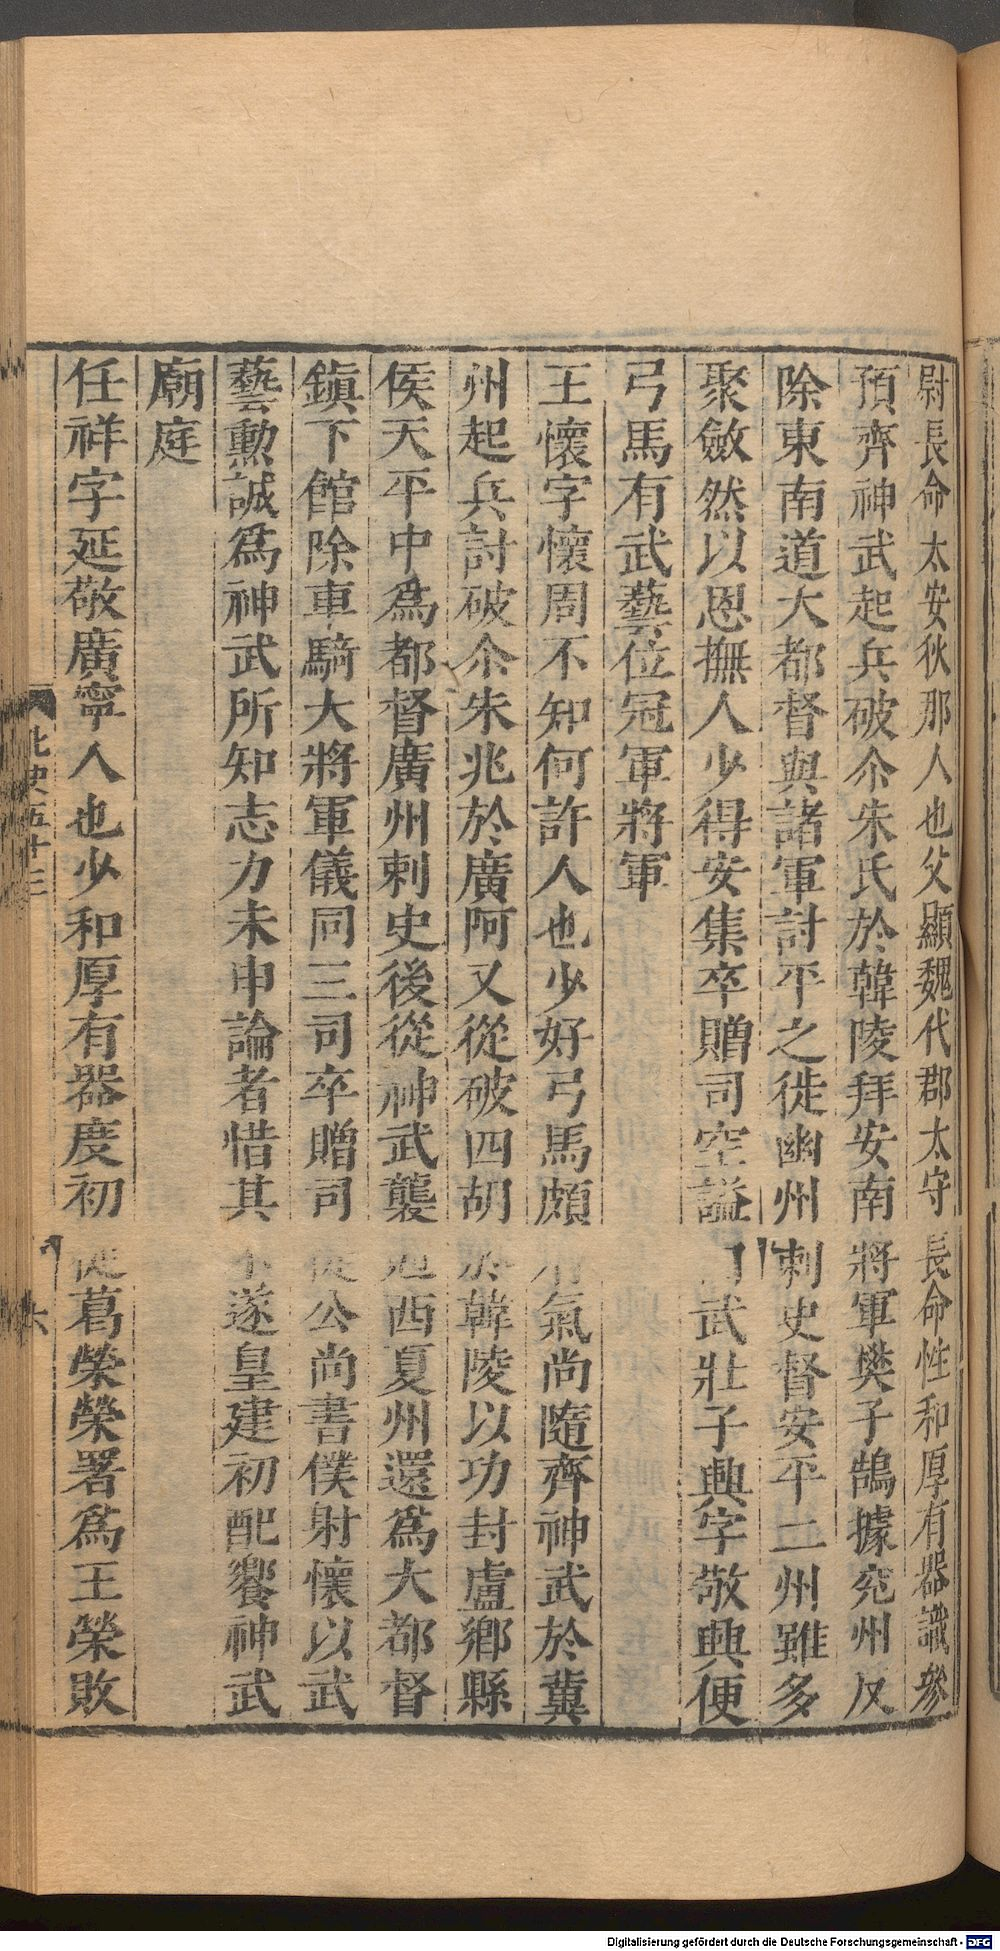 尉長命太安狄那人也父顯魏代郡太守長命性和厚有器識參
預齊神武起兵破尒朱氏於韓陵拜安南將軍樊子鵠據兖州反
除東南道大都督與諸軍討平之徙幽州刺史督安平二州雖多
聚斂然以恩撫人少得安集卒贈司空謚曰武壯子興字敬興便
弓馬有武藝位冠軍將軍
王懷字懷周不知何許人也少好弓馬頗有氣尚隨齊神武於冀
州起兵討破尒朱兆於廣阿又從破四胡於韓陵以功封盧鄉縣
侯天平中爲都督廣州刺史後從神武襲西夏州還爲大都督
鎮下館除車騎大將軍儀同三司卒贈司徒公尚書僕射懷以武
藝勲誠爲神武所知志力未申論者惜其不遂皇建初配饗神武
廟庭
任祥字延敬廣寧人也少和厚有器度初從葛榮榮署爲王榮敗
北史五十三
六
Digitalisierung gefördert durch die Deutsche Forschungsgemeinschaft - DFG